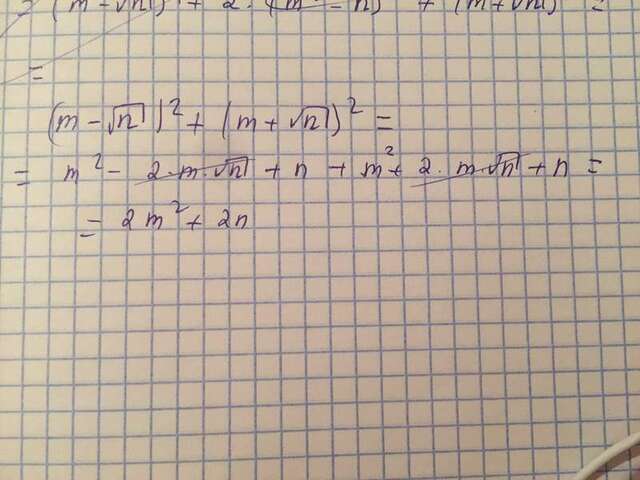 = (m - √n) + 2 · (m² - n) + (m + √n) =
=
(m - √n)² + (m + √n)² =
= m² - 2 · m · √n + n + m² + 2 · m √n + n =
= 2m² + 2n